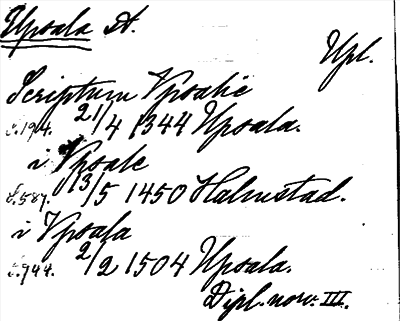 Upsala St.
Upl.
Scriptum Vpsalie
s. 194. 21/4 1344 Upsala.
i Vpsale
s. 587. 13/5 1450 Halmstad.
i Vpsala
s. 744. 2/2 1504 Upsala.
Dipl. norv. III.